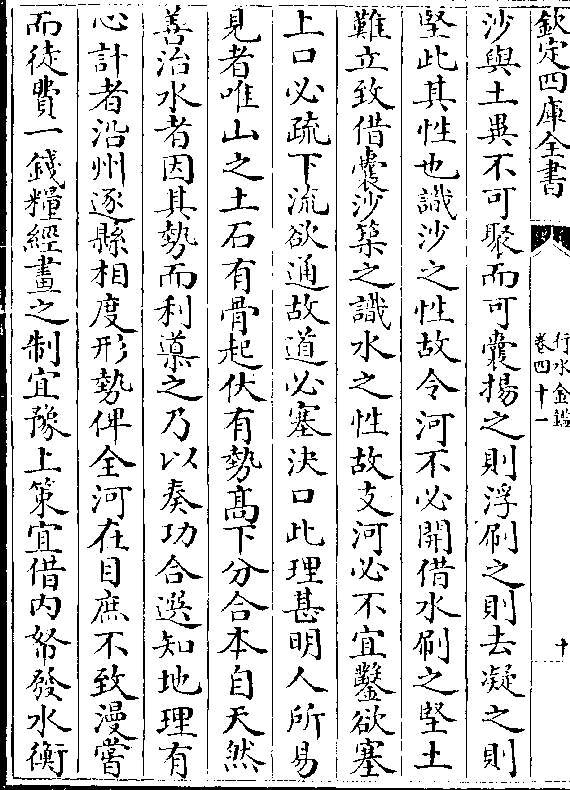 欽定四庫全書
行水金鑑
卷四十一
十
沙與土異不可聚而可囊揚之則浮刷之則去凝之則
堅此其性也識沙之性故令河不必開借水刷之堅土
難立致借囊沙築之識水之性故支河必不宜鑿欲塞
上口必疏下流欲通故道必塞決口此理甚明人所易
見者唯山之土石有骨起伏有勢髙下分合本自天然
善治水者因其勢而利導之乃以奏功合選知地理有
心計者沿州逐縣相度形勢俾全河在目庶不致漫嘗
而徒費一錢糧經畫之制宜豫上策宜借内帑發水衡